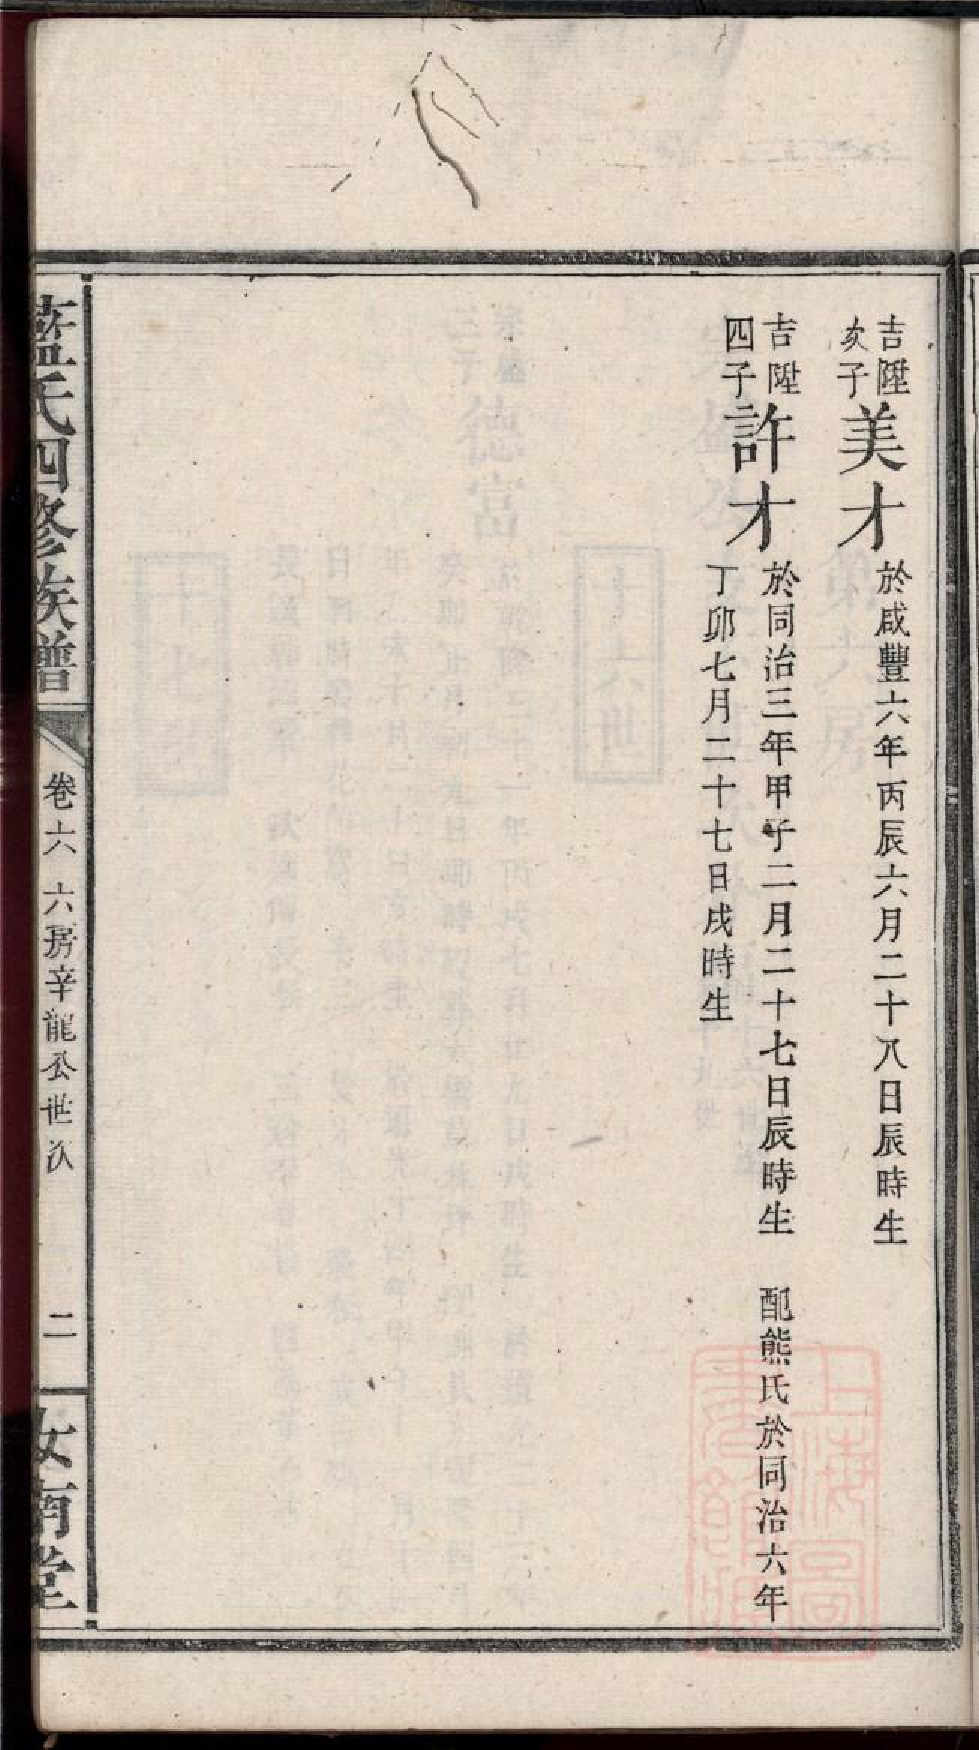 吉陞
次子
美才
於咸豐六年丙辰六月二十八日辰時生
吉陞
四子
許才
於同治三年甲子二月二十七日辰時生 配熊氏於同治六年
丁卯七月二十七日戌時生
藍氏四修族譜
卷六 六房辛龍公世次
二
汝南堂
上海圖